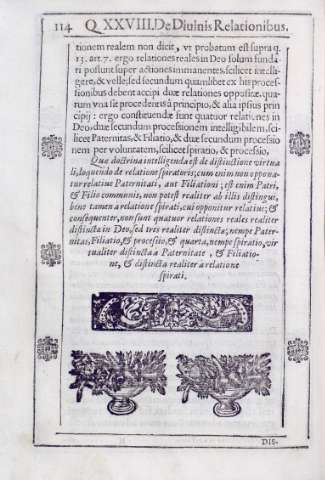 114 Q. XXVIII. De Diuinis Relationibus.
tionem realem non dicit, vt probatum est supra q.
13. art. 7. ergo relationes reales in Deo solum funda
ri possunt super actiones immanentes, scilicet intelli-
gere, & velle; sed secundum quamlibet ex his proces-
sionibus debent accipi duæ relationes oppositæ, qua-
rum vna sit procedentis à principio, & alia ipsius prin
cipij: ergo constituendæ sunt quatuor relationes in
Deo, duæ secundum processionem intelligibilem, sci-
licet Paternitas, & Filiatio, & duæ secundum processio
nem per voluntatem, scilicet spiratio, & processio,
Quæ doctrina intelligenda est de distinctione virtua
li, loquendo de relatione spiratoris; cum enim non oppona-
tur relatiuè Paternitati, aut Filiationi; est enim Patri,
& Filio communis, non potest realiter ab illis distingui,
bene tamen à relatione spirati, cui opponitur relatiuè; &
consequenter, non sunt quatuor relationes reales realiter
distinctæ in Deo, sed tres realiter distinctæ; nempe Pater-
nitas, Filiatio, & processio, & quarta, nempe spiratio, vir
tualiter distincta à Paternitate, & Filiatio-
ne, & distincta realiter à relatione
spirati.
DIS-